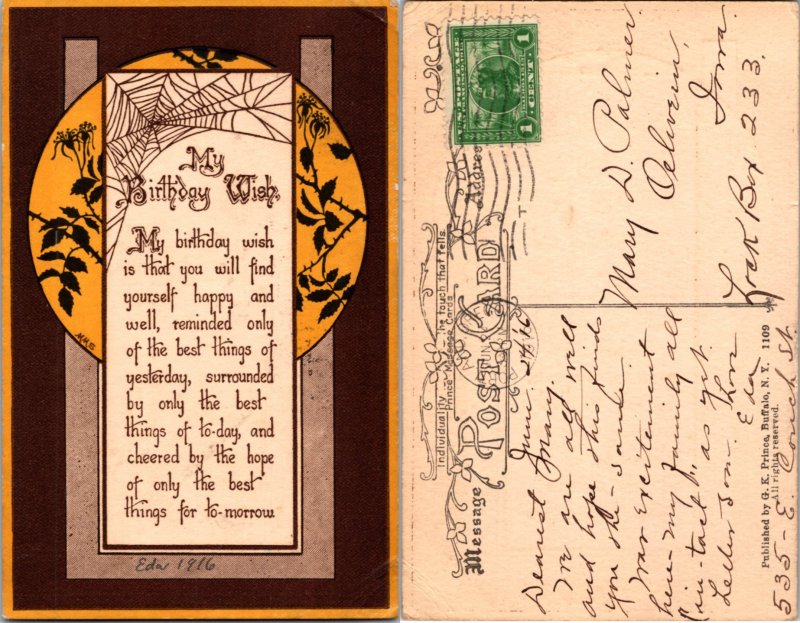 My
Birthday Wish.
My birthday wish
is that you will find
yourself happy and
well, reminded only
of the best things of
yesterday, surrounded
by only the best
things of to-day, and
cheered by the hope
of only the best
things for to-morrow
Eda 1916
U.S. POSTAGE
1 CENT 1
Address
Mary D. Palmer
Oelwein,
Iowa.
Lock Box 233.
Individuality - the touch that tells.
Prince Message Cards
POST CARD
Message
June 24/16
Dearest Mary.
We are all well
and hope this finds
you the same.
War excitement
here - my family all
"in-tact", as yet.
Letter soon. Thon
Eda
535 - E. Couch St.
Published by G. K. Prince, Buffalo, N. Y. 1109
All rights reserved.